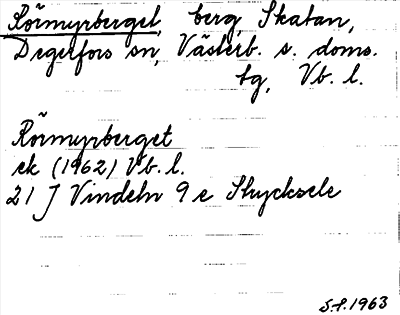 Rörmyrberget, berg, Skatan,
Degerfors sn, Västerb. s. doms.
tg, Vb. l.
Rörmyrberget
ek (1962) Vb. l.
21 J Vindeln 9 e Strycksele
S.P. 1963